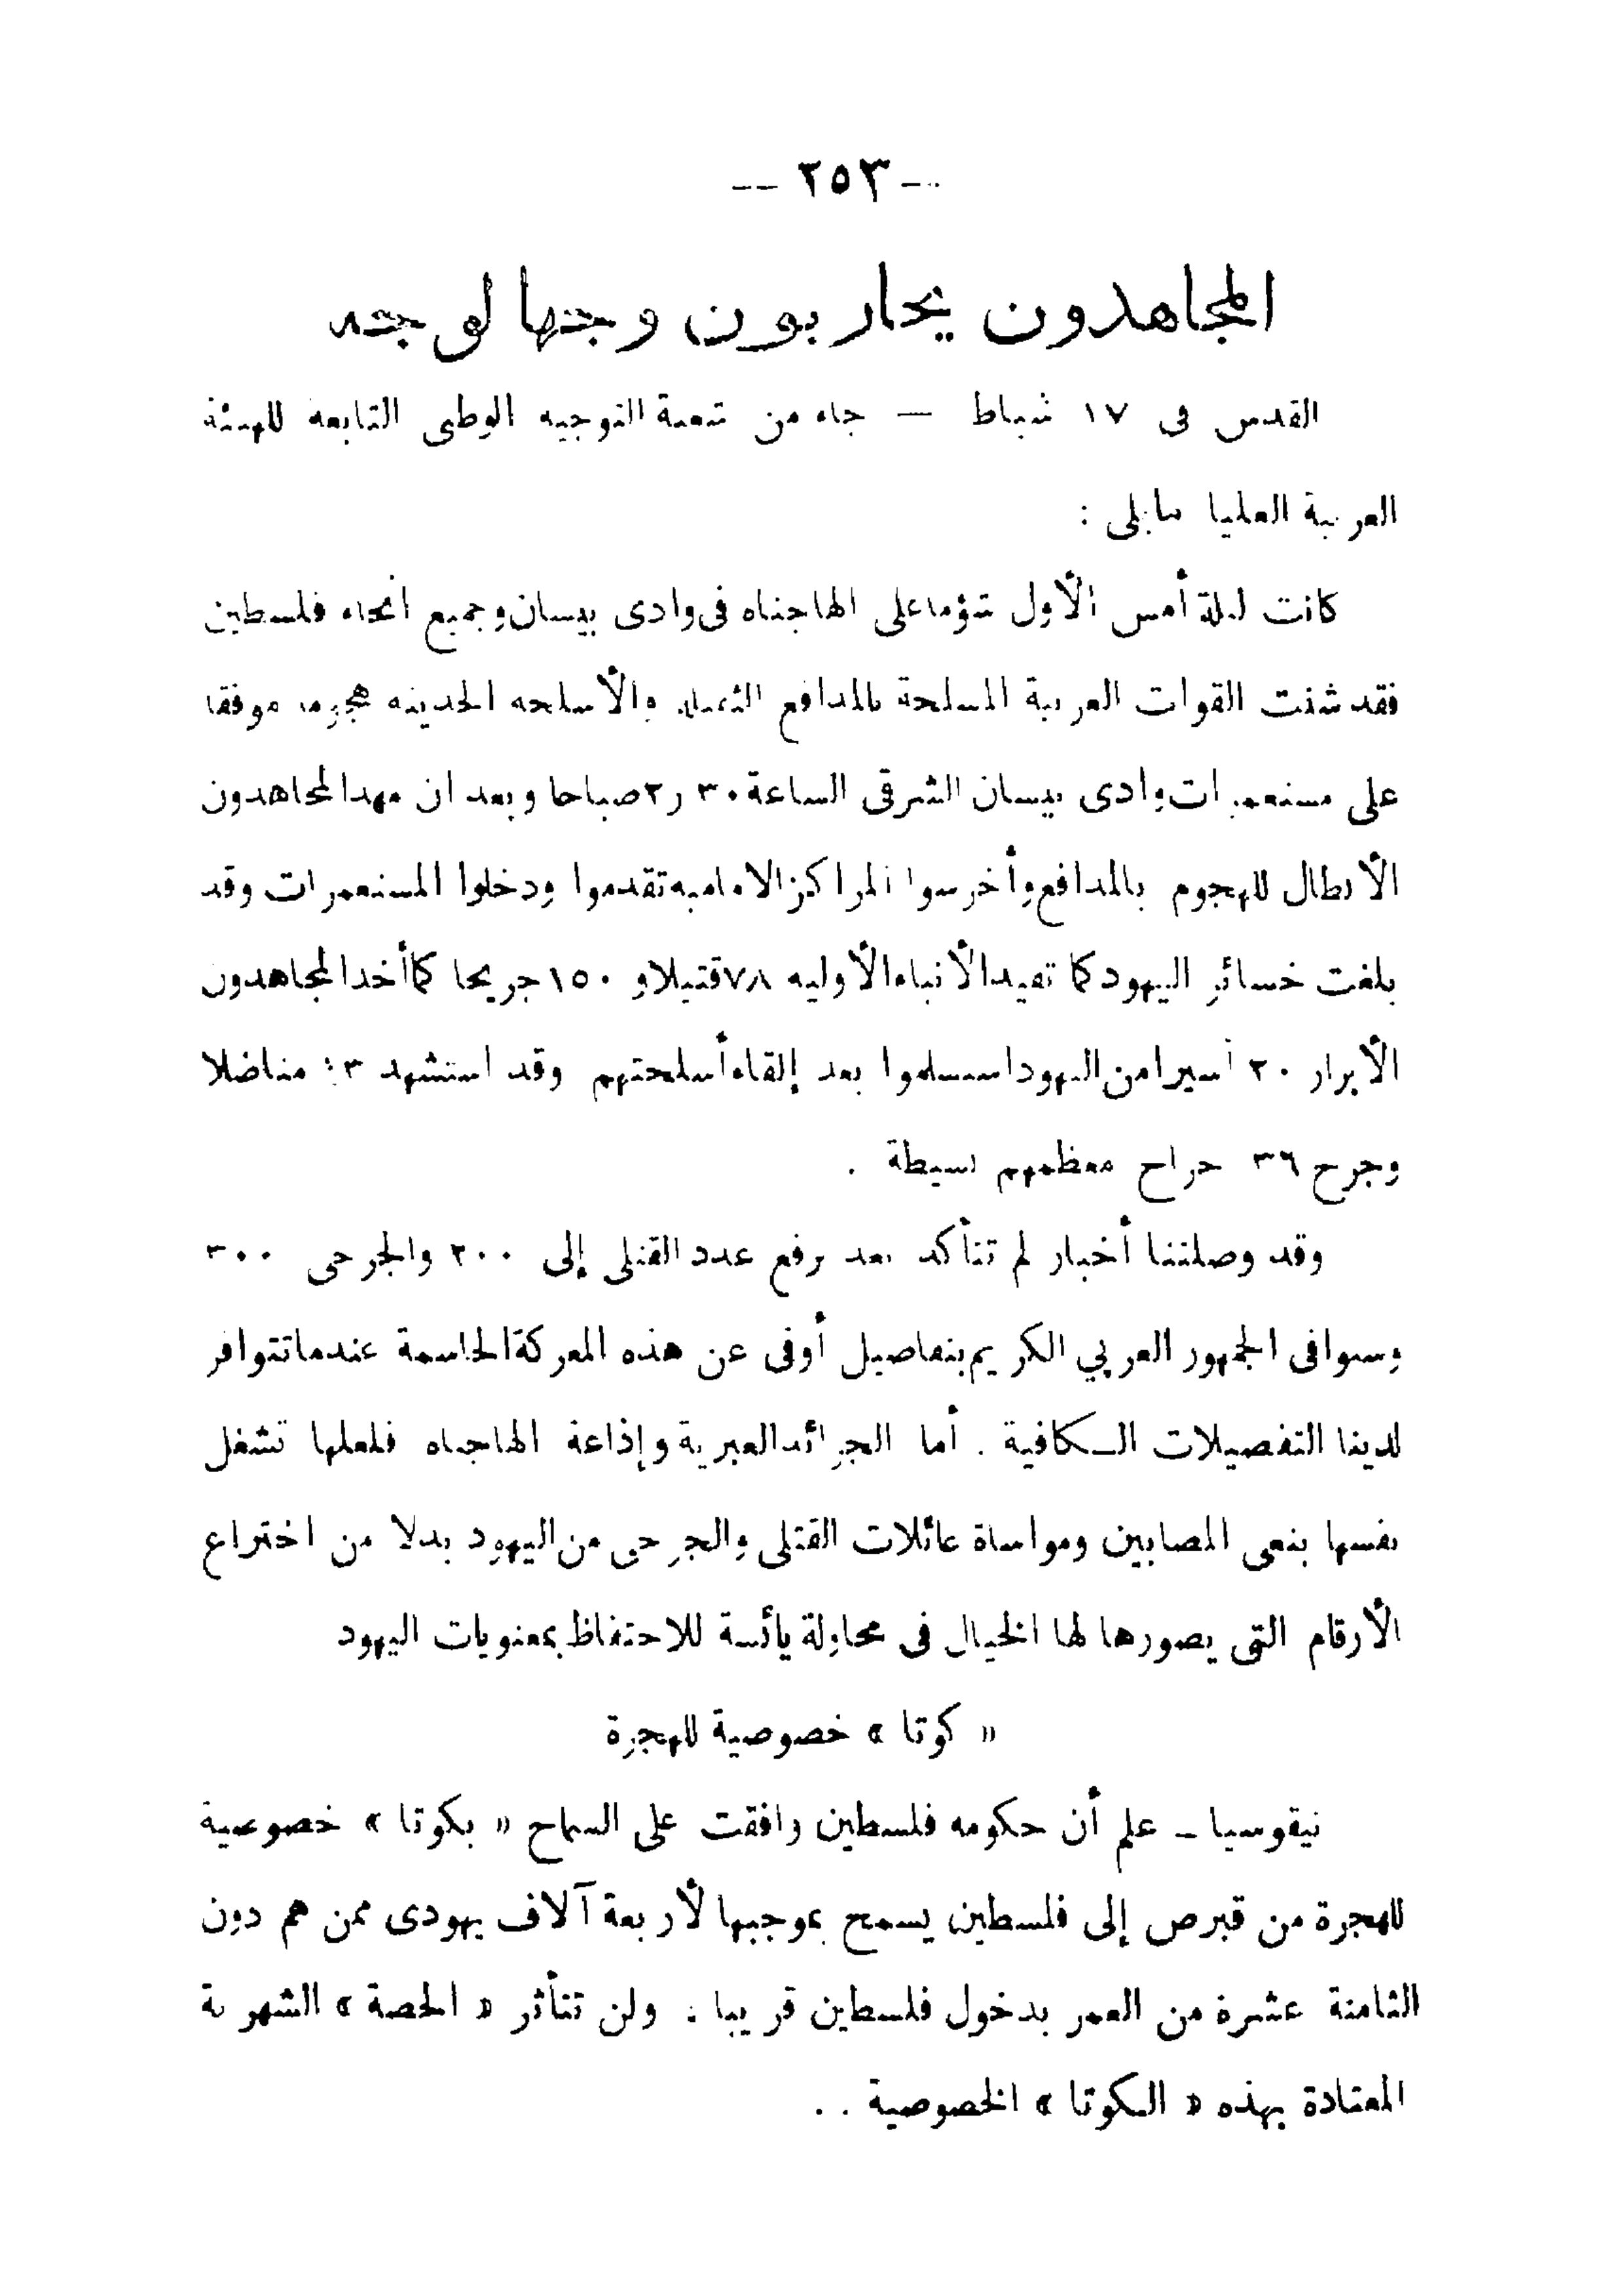 — ٢٥٣ —
المجاهدون يحاربون وجها لوجه
القدس فى ١٧ شباط — جاء من شعبة التوجيه الوطى التابعة للهيئة
العربية العليا مايلى :
كانت ليلة أمس الأول شؤما على الهاجناه فى وادى بيسان وجميع انحاء فلسطين
فقد شنت القوات العربية المسلحة بالمدافع الثقيلة والأسلحه الحديثه هجوما موفقا
على مستعمرات وادى بيسان الشرقى الساعة ٣٠ ر٢ صباحا وبعد ان مهد المجاهدون
الأبطال للهجوم بالمدافع وأخرسوا المراكز الاماميه تقدموا ودخلوا المستعمرات وقد
بلغت خسائر اليهود كما تفيد الأنباء الأوليه ٧٨ قتيلا و ١٥٠ جريحا كما أخد المجاهدون
الأبرار ٢٠ أسيرا من اليهود استسلموا بعد إلقاء أسلحتهم وقد استشهد مناضلا
وجرح ٣٦ جراح معظمهم بسيطة .
وقد وصلتنا أخبار لم تتأكد بعد برفع عدد القتلى إلى ٢٠٠ والجرحى ٣٠٠
وسنوافى الجمهور العربي الكريم بتفاصيل أوفى عن هذه المعركة الحاسمة عندما تتوافر
لدينا التفصيلات الـكافية . أما الجرائد العبرية وإذاعة الهاجناه فلعلها تشغل
نفسها بنعى المصابين ومواساة عائلات القتلى والجرحى من اليهود بدلا من اختراع
الأرقام التى يصورها لها الخيال فى محاولة يائسة للاحتفاظ بمعنويات اليهود
« كوتا » خصوصية للهجرة
نيقوسيا — علم أن حكومه فلسطين وافقت على السماح « بكوتا » خصوصية
للهجرة من قبرص إلى فلسطين يسمح بموجبها لأربعة آلاف يهودى ممن هم دون
الثامنة عشرة من العمر بدخول فلسطين قريبا . ولن تتأثر « الحصة » الشهرية
المعتادة بهذه « الـكوتا » الخصوصية . .